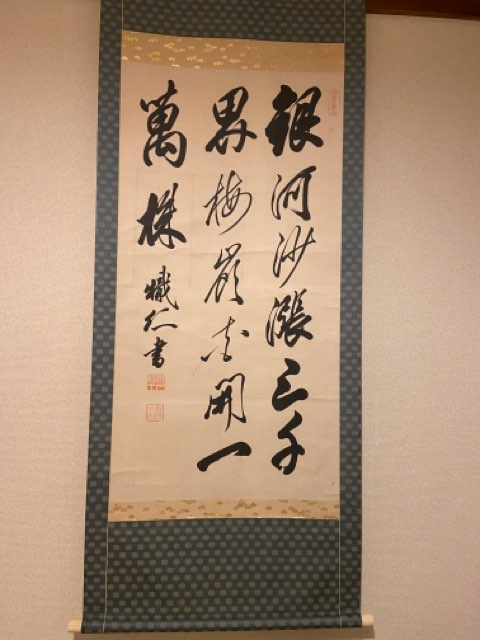 銀河沙漲三千
界梅嶺花開一
萬株
熾仁書